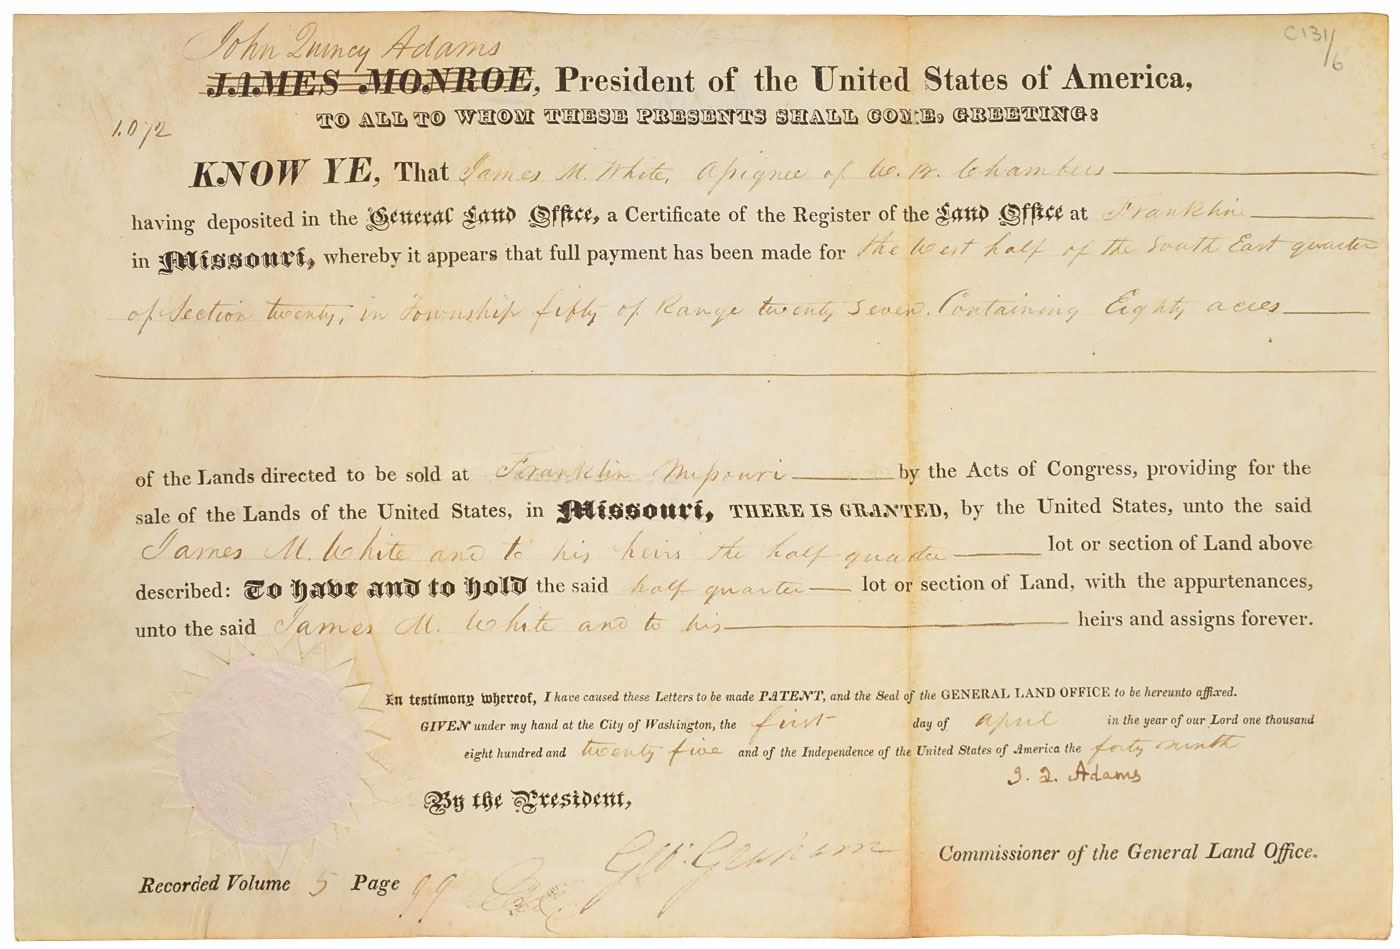 C131/6
John Quincy Adams
JAMES MONROE, President of the United States of America,
TO ALL TO WHOM THESE PRESENTS SHALL COME, GREETING:
1.072
KNOW YE, That James M. White, Assignee of W. B. Chambers
having deposited in the General Land Office, a Certificate of the Register of the Land Office at Franklin
in Missouri, whereby it appears that full payment has been made for the West half of the South East quarter
of Section twenty, in Township fifty of Range twenty Seven. Containing Eighty acres
of the Lands directed to be sold at Franklin Missouri by the Acts of Congress, providing for the
sale of the Lands of the United States, in Missouri, THERE IS GRANTED, by the United States, unto the said
James M. White and to his heirs the half quarter lot or section of Land above
described: To have and to hold the said half quarter lot or section of Land, with the appurtenances,
unto the said James M. White and to his heirs and assigns forever.
In testimony whereof, I have caused these Letters to be made PATENT, and the Seal of the GENERAL LAND OFFICE to be hereunto affixed.
GIVEN under my hand at the City of Washington, the first day of April in the year of our Lord one thousand
eight hundred and twenty five and of the Independence of the United States of America the forty ninth
J. Q. Adams
By the President,
Geo: Graham Commissioner of the General Land Office.
Recorded Volume 5 Page 99